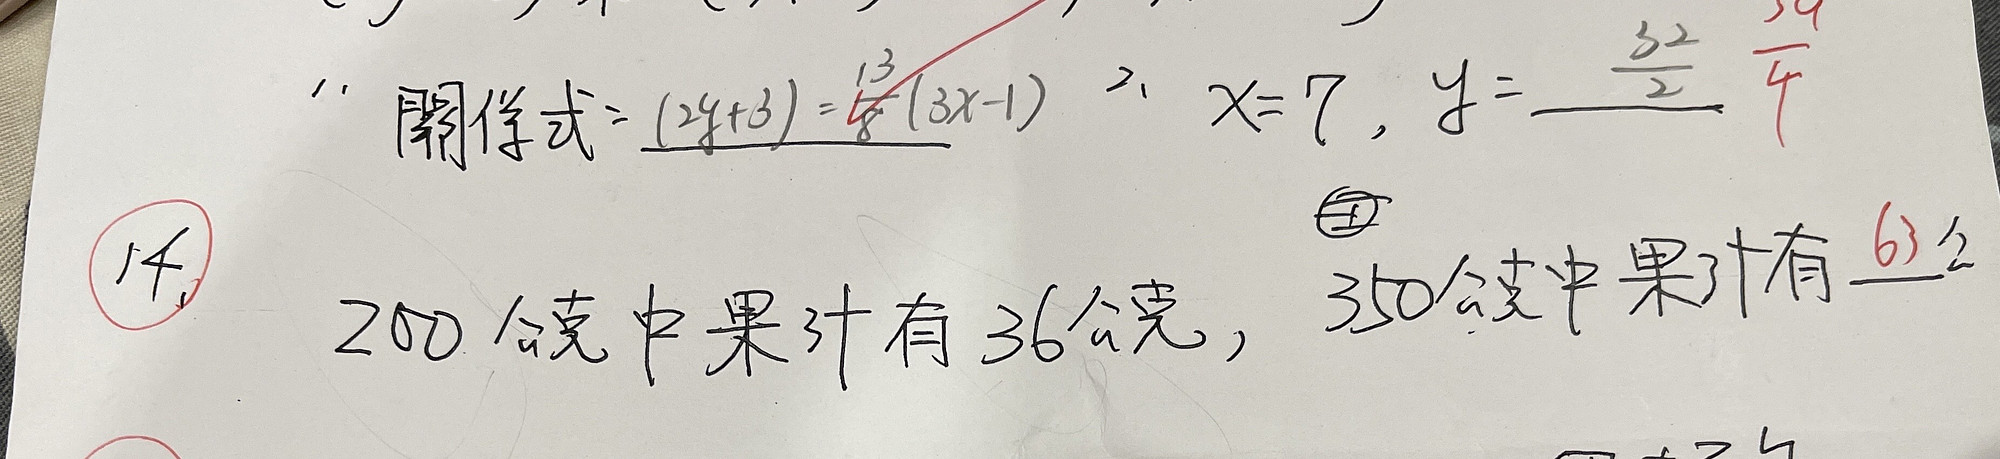 1. 關係式=(2y+3)=13/8(3x-1) 2. x=7, y=32/2 39/4
14. 200公克中果汁有36公克, 350公克中果汁有63公